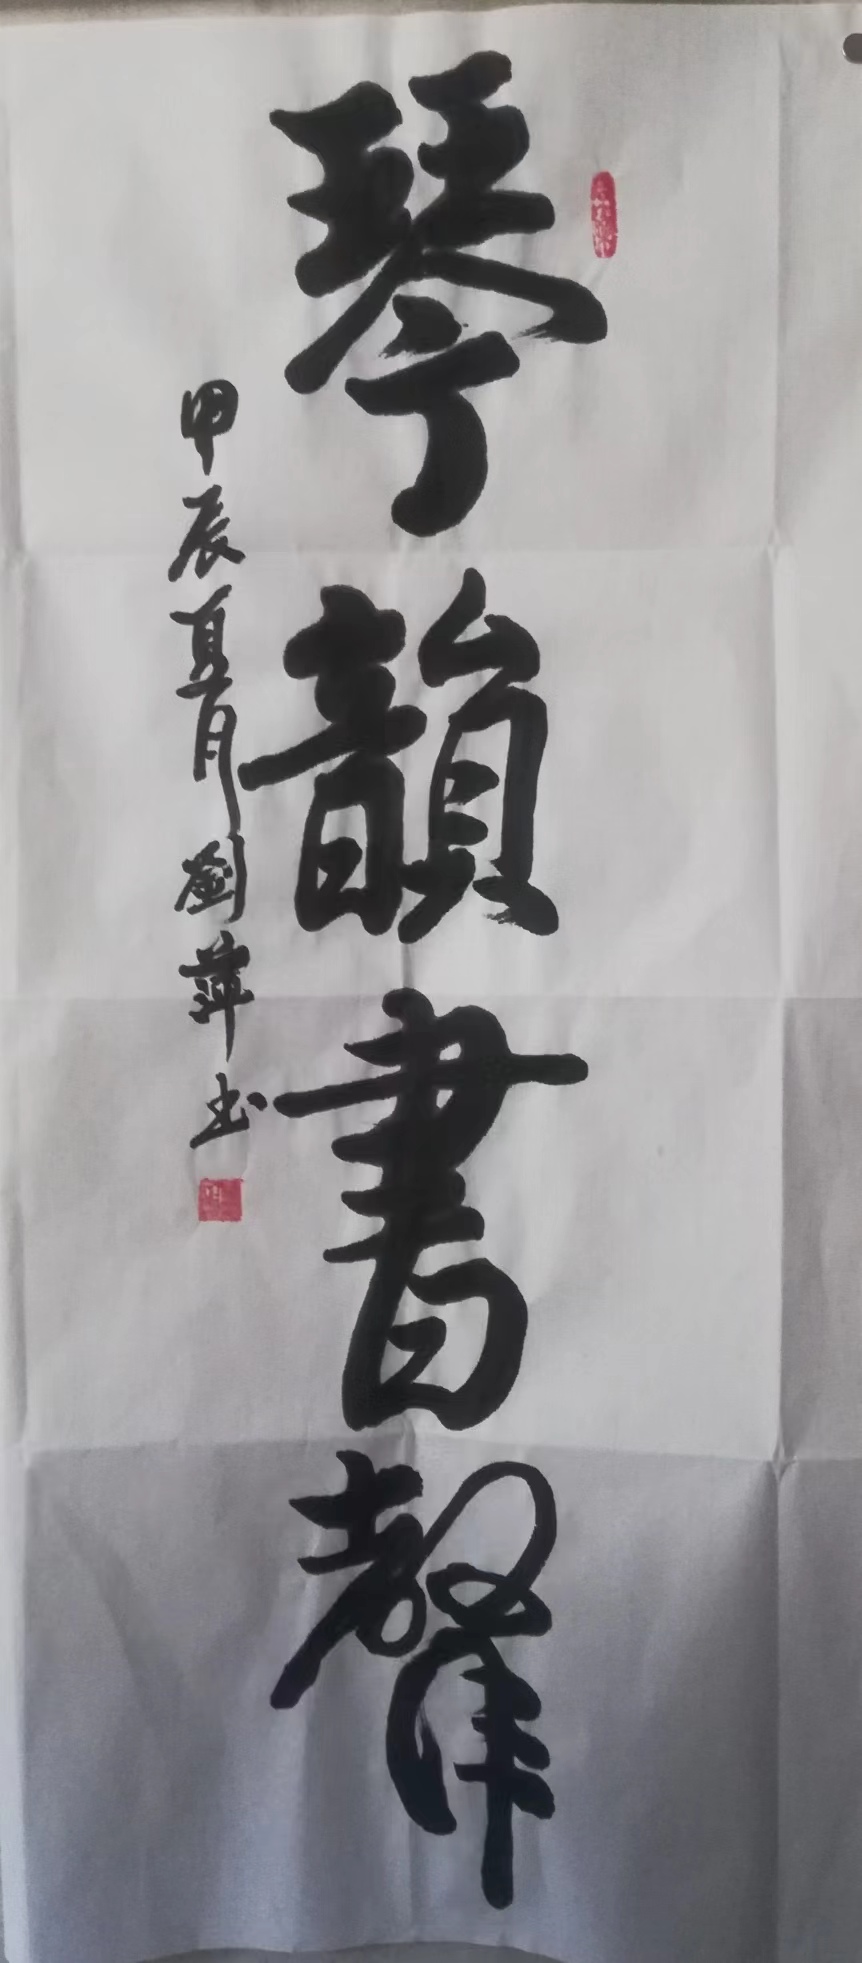 琴韻書聲
甲辰夏月劉萍书